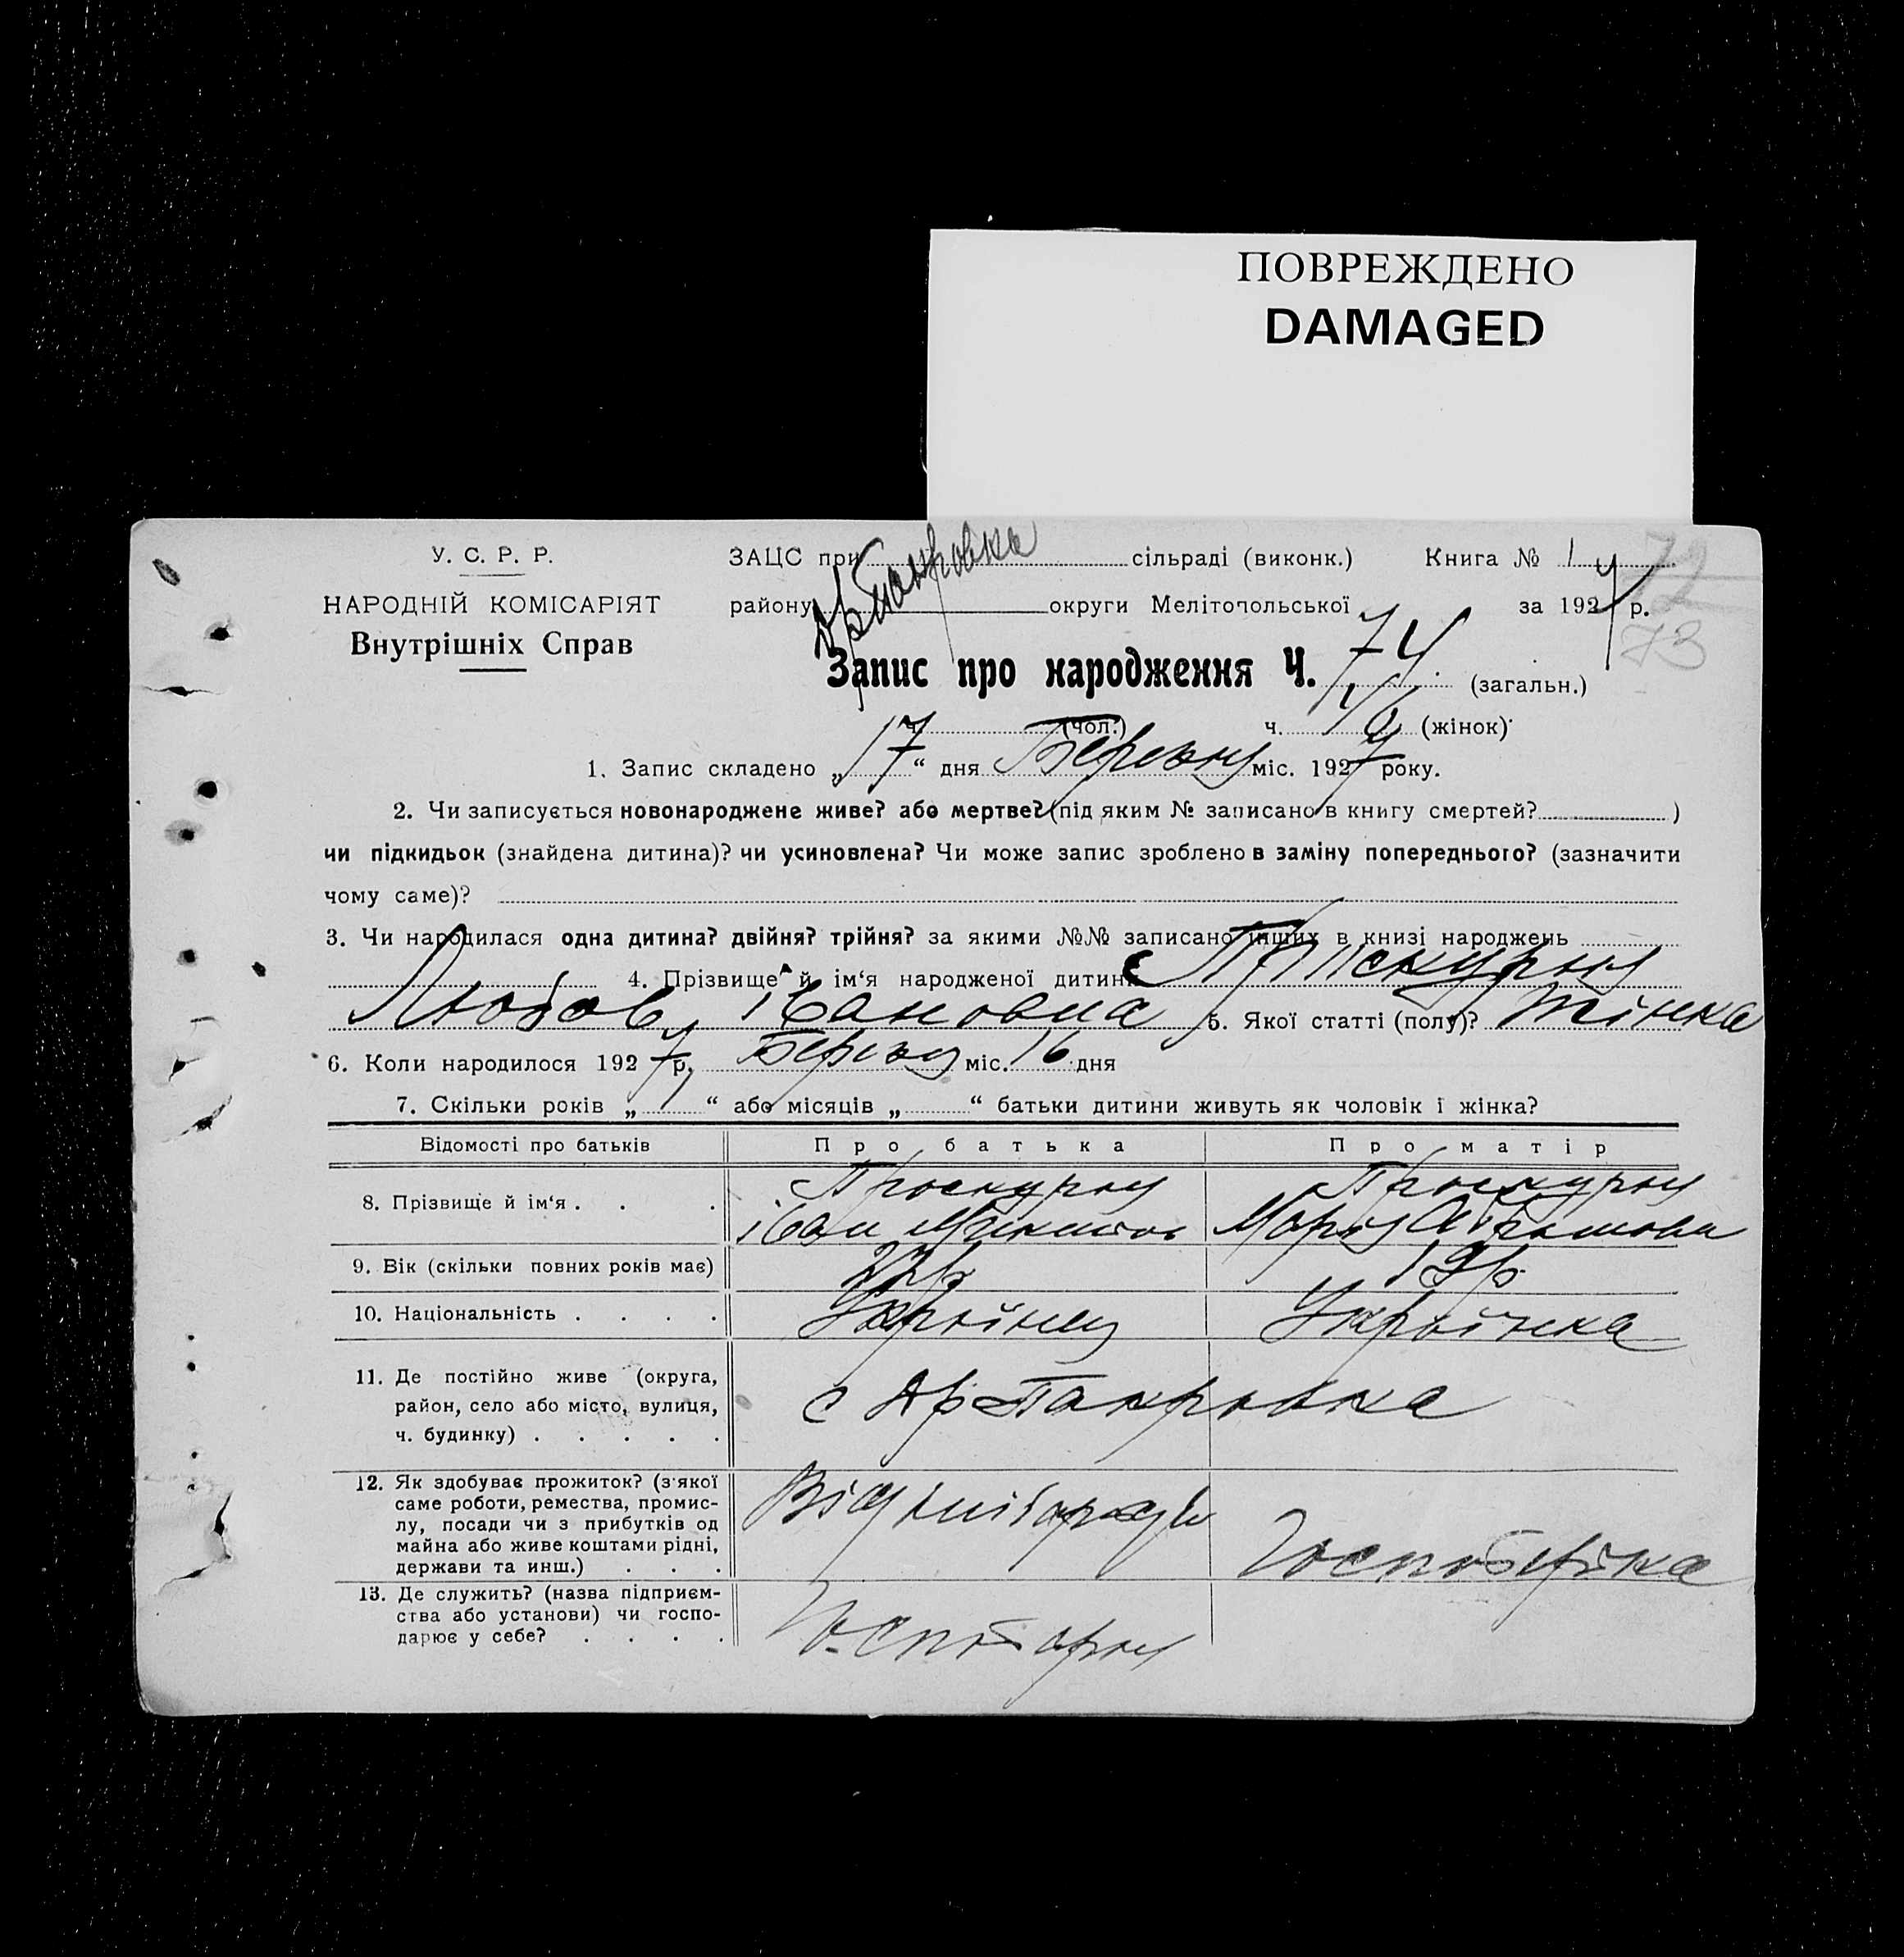 ПОВРЕЖДЕНО
DAMAGED
У. С. Р. Р.
НАРОДНІЙ КОМІСАРІЯТ
Внутрішніх Справ
ЗАЦС при сільраді (виконк.) Книга № 1
району округи Мелітопольської за 1927 р.
72
73
Запис про народження Ч. 74 (загальн.)
ч. (чол.) ч. (жінок)
1. Запис складено „17“ дня Березня міс. 1927 року.
2. Чи записується новонароджене живе? або мертве? (під яким № записано в книгу смертей? )
чи підкидьок (знайдена дитина)? чи усиновлена? Чи може запис зроблено в заміну попереднього? (зазначити
чому саме)?
3. Чи народилася одна дитина? двійня? трійня? за якими №№ записано інших в книзі народжень
4. Прізвище й ім‘я народженої дитини Проскурня
Любов Івановна 5. Якої статті (полу)? Жінка
6. Коли народилося 1927 р. Березня міс. 16 дня
7. Скільки років „ “ або місяців „ “ батьки дитини живуть як чоловік і жінка?
Відомості про батьків Про батька Про матір
8. Прізвище й ім‘я . . . Проскурня Проскурня
Іван Микитов Марія Абрамовн
9. Вік (скільки повних років має) 22р 19р.
10. Національність . . . . Українец Українка
11. Де постійно живе (округа,
район, село або місто, вулиця,
ч. будинку) . . . . .
с Ар Пакровка
12. Як здобуває прожиток? (з якої
саме роботи, ремества, промис-
лу, посади чи з прибутків од
майна або живе коштами рідні,
держави та инш.) . . .
Від хлібородів
13. Де служить? (назва підприєм-
ства або установи) чи госпо-
дарює у себе? . . . .